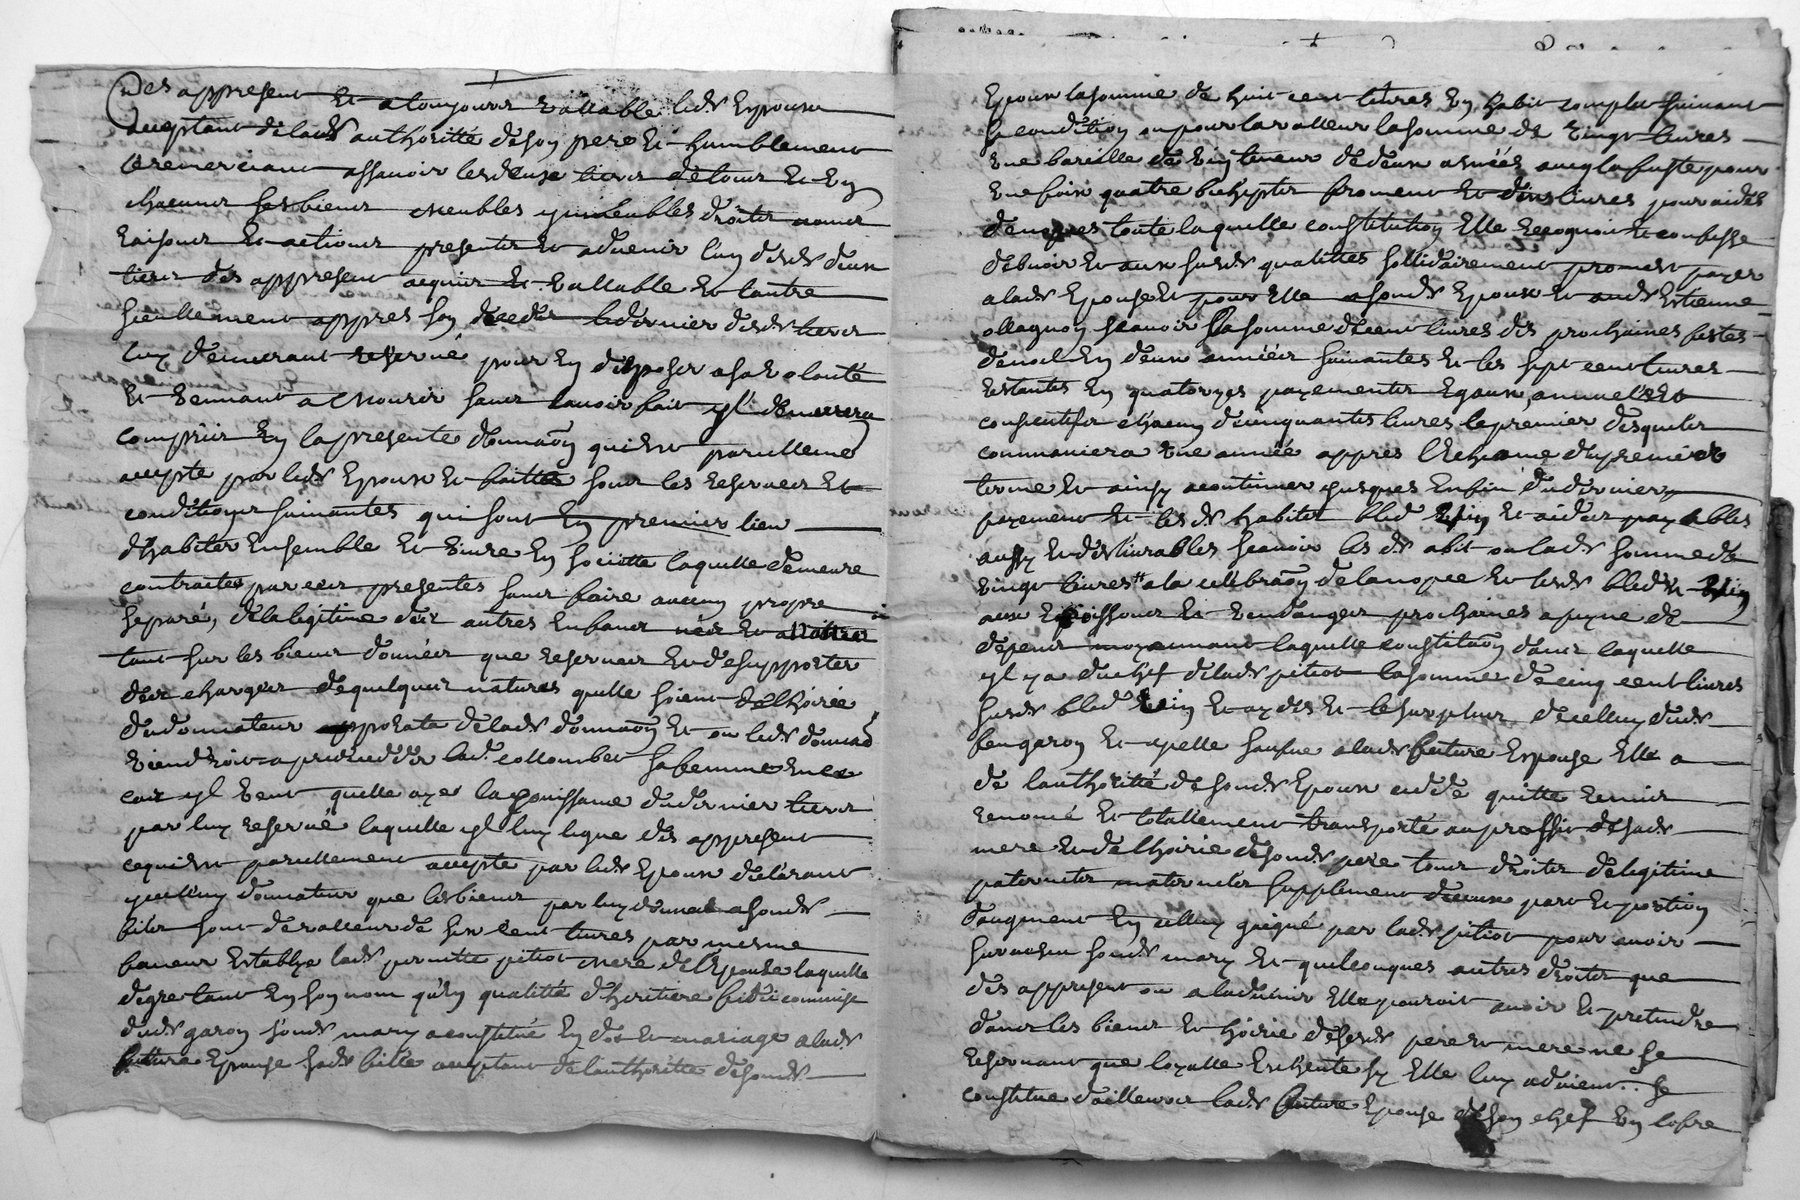 Des appresent et a toujours vallable led. Espoux
acceptant de lad. authoritté de son pere et humblement
le remerciant assavoir les deux tiers de tous et un
chacuns ses biens meubles ymmeubles droits noms
raisons et actions presents et advenir l'un desd. deux
tiers des appresent acquis et vallable et lautre
seullement appres son decedz le dernier desd. tiers
luy demeurant reservé pour en disposer a sa volonté
et venant a mourir sans lavoir fait yl demeurera
compris en la presente donnaon qui est pareillemt
accepté par led. Epoux et faitte sous les reserves et
conditions suivantes qui sont en premier lieu
d'habiter ensemble et vivre en societte laquelle demeure
contractée par ces presentes sans faire aucun propre
separé, de la legitime des autres enfans nés et a naitre
tant sur les biens donnés que reserves et de supporter
des charges de quelques natures quelle soient de lhoirie
du donnateur de lad. donnaon et ou led. donnateur
viendroit a predeceder lad. collombet sa femme en ce
cas yl veut quelle aye la jouissance du dernier tiers
par luy reservé laquelle yl luy legue des appresent
ce qui est pareillement accepté par led. Epoux declarant
yceluy donnateur que les biens par luy donnes a sond.
fils sont de valleur de six cent livres par mesme
faveur establye lad. pitiot mere de l'Epouse laquelle
de gre tant en son nom qu'en qualitté d'heritiere fideicommise
dud. garon sond. mary a constitué en dot et mariage a lad.
future Epouse sad. fille acceptant de lauthoritté de sond.
Epoux la somme de huit cent livres un habit complet suivant
sa condition ou pour la valleur la somme de vingt livres
une bareille de vin teneur de deux asnées avec la fuste pour
une fois quatre bichets froment et livres pour aides
de nopces toute laquelle constitution Elle recognoit et confesse
debvoir et aux susd. qualittes sollidairement promet payer
a lad. Epouse et pour Elle a sond. Epoux et aud. Estienne
ollagnon scavoir la somme de cent livres des prochaines festes
de noel en deux années suivantes et les sept cent livres
restantes en quatorzes payements egaux, annuels et
consecutifs chacun de cinquantes livres le premier desquels
commancera une année appres l'echeance du premier
terme et ainsy a continuer jusques enfin du dernier
payement et lesd. habits bled vin et aides payables
aussy et delivrables scavoir led. abit ou lad. somme de
vingt livres a la celebraon de la nopce et lesd. bled et vin
aux moissons et vendanges prochaines a peyne de
depens moyennant laquelle constitution dans laquelle
yl y a du chef de lad. pitiot la somme de cinq cent livres
susd. bled vin et aydes et le surplus de celluy dud.
feu garon et a lad. future Espouse Elle a
de lauthoritté de sond. Epoux cedé quitté remis
renoncé et totallement transporté au proffit de sad.
mere et de lhoirie de sond. pere tous droits de legitime
paternels maternels supplement d'iceux part et portion
daugment en celluy gaigné par lad. pitiot pour avoir
survescu sond. mary et quelconques autres droits que
des appresent ou a ladvenir Elle pouroit avoir et pretendre
dans les biens et hoirie de sesd. pere et mere ne se
reservant que loyalle Escheute sy Elle luy advient.. se
constitue dailleurs lad. future Epouse de son chef en cofre